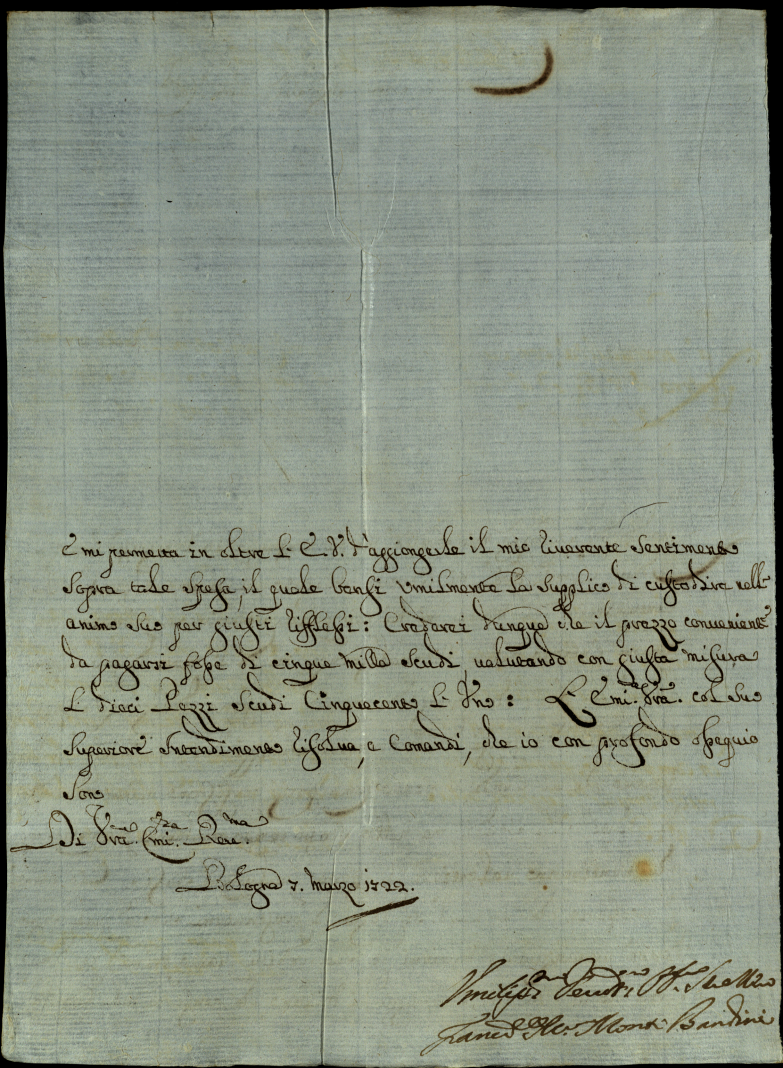 E mi permetta in oltre l' E. V. d'aggiongerle il mio riverente sentimento
sopra tale spesa, il quale bensì umilmente la supplico di custodire nell'
animo suo per giusti riflessi: Crederei dunque che il prezzo conveniente
da pagarsi fosse di cinque milla scudi, valutando con giusta misura
li dieci Pezzi Scudi Cinquecento l' Uno: L' Emi.za Vra. col suo
superiore Intendimento risolva, e Comandi, che io con profondo ossequio
sono
Di Vra. Emi.za Reve.ma
Bologna 7. Marzo 1722.
Umiliss.mo Devot.mo
Franc.o Monti Bandini